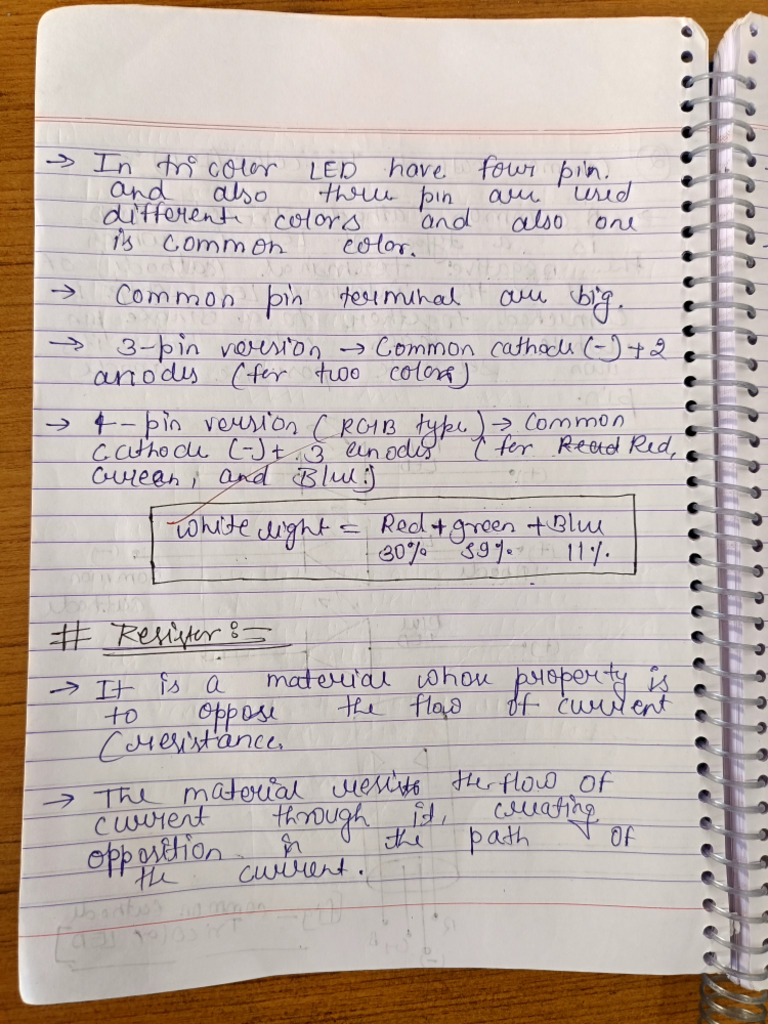 → In tri color LED have four pin.
and also three pin are used
different colors and also one
is common color.
→ Common pin terminal are big.
→ 3-pin version → Common cathode (-) + 2
anodes (for two colors)
→ 4-pin version (RGB type) → Common
cathode (-) + 3 anodes (for Red,
Green, and Blue.)
White light = Red + green + Blue
30% 59% 11%.
# Resister :-
→ It is a material whose property is
to oppose the flow of current
(resistance.
→ The material resists the flow of
current through it, creating
opposition in the path of
the current.